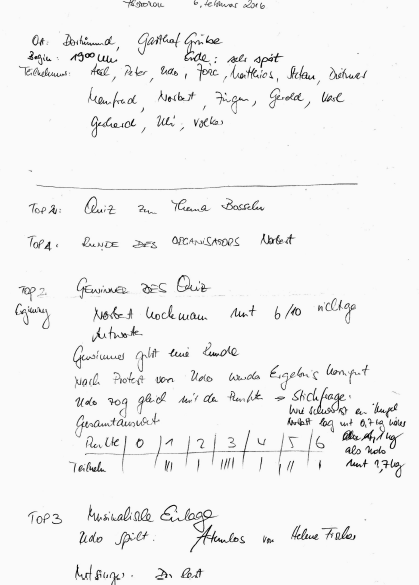 6. Februar 2016
Ort: Dortmund, Gasthof Grübe
Beginn: 19⁰⁰ Uhr Ende: sehr spät
Teilnehmer: Axel, Peter, Udo, Jörg, Matthias, Stefan, Dietmar
Manfred, Norbert, Jürgen, Gerold, Karl
Gerhard, Uli, Volker
TOP 2: Quiz zum Thema Bosseln
TOP 4: RUNDE DES ORGANISATORS Norbert
TOP 2 GEWINNER DES Quiz
Ergänzung Norbert Hockmann mit 6/10 richtige
Antworten
Gewinner gibt eine Runde
Nach Protest von Udo wurde Ergebnis korrigiert
Udo zog gleich mit der Punkte ⇒ Stichfrage:
Wie schwer ist ein
Gesamtauswert Norbert lag mit 0,7 kg näher
Punkte | 0 | 1 | 2 | 3 | 4 | 5 | 6 1 kg
als Udo
Teilnehm | | III | I | IIII | I | II | I mit 1,7 kg
TOP 3 Musikalische Einlage
Udo spielt: Atemlos von Helene Fischer
Mitsänger: Der Rest